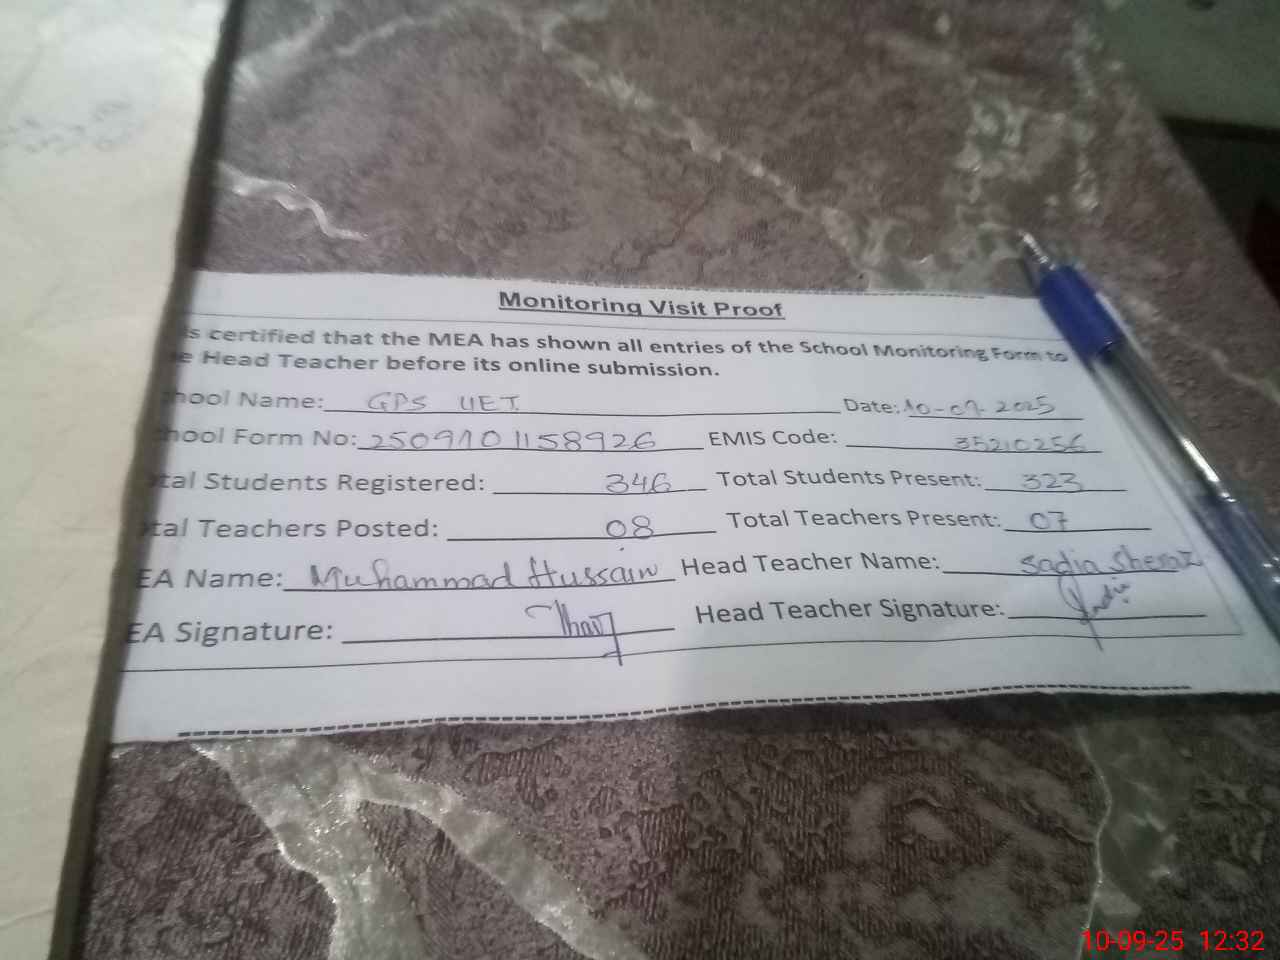 Monitoring Visit Proof
is certified that the MEA has shown all entries of the School Monitoring Form to
e Head Teacher before its online submission.
hool Name: GPS UET Date: 10-09-2025
hool Form No: 2509101158926 EMIS Code: 35210256
tal Students Registered: 346 Total Students Present: 323
tal Teachers Posted: 08 Total Teachers Present: 07
EA Name: Muhammad Hussain Head Teacher Name: Sadia Sheraz
EA Signature: Head Teacher Signature:
10-09-25 12:32